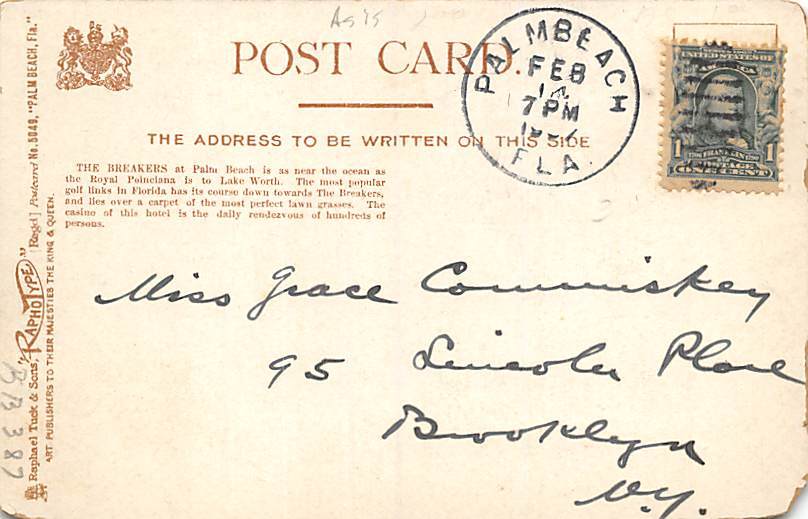 As is
POST CARD.
THE ADDRESS TO BE WRITTEN ON THIS SIDE
PALM BEACH
FEB
7 PM
FLA.
UNITED STATES OF
AMERICA
1 1706 FRANKLIN 1790 1
POSTAGE
ONE CENT
THE BREAKERS at Palm Beach is as near the ocean as
the Royal Poinciana is to Lake Worth. The most popular
golf links in Florida has its course down towards The Breakers,
and lies over a carpet of the most perfect lawn grasses. The
casino of this hotel is the daily rendezvous of hundreds of
persons.
Miss Grace Commiskey
95 Lincoln Place
Brooklyn
N.Y.
Raphael Tuck & Sons' "RAPHOTYPE" [Regd] Postcard No. 5049, "PALM BEACH, Fla."
ART PUBLISHERS TO THEIR MAJESTIES THE KING & QUEEN.